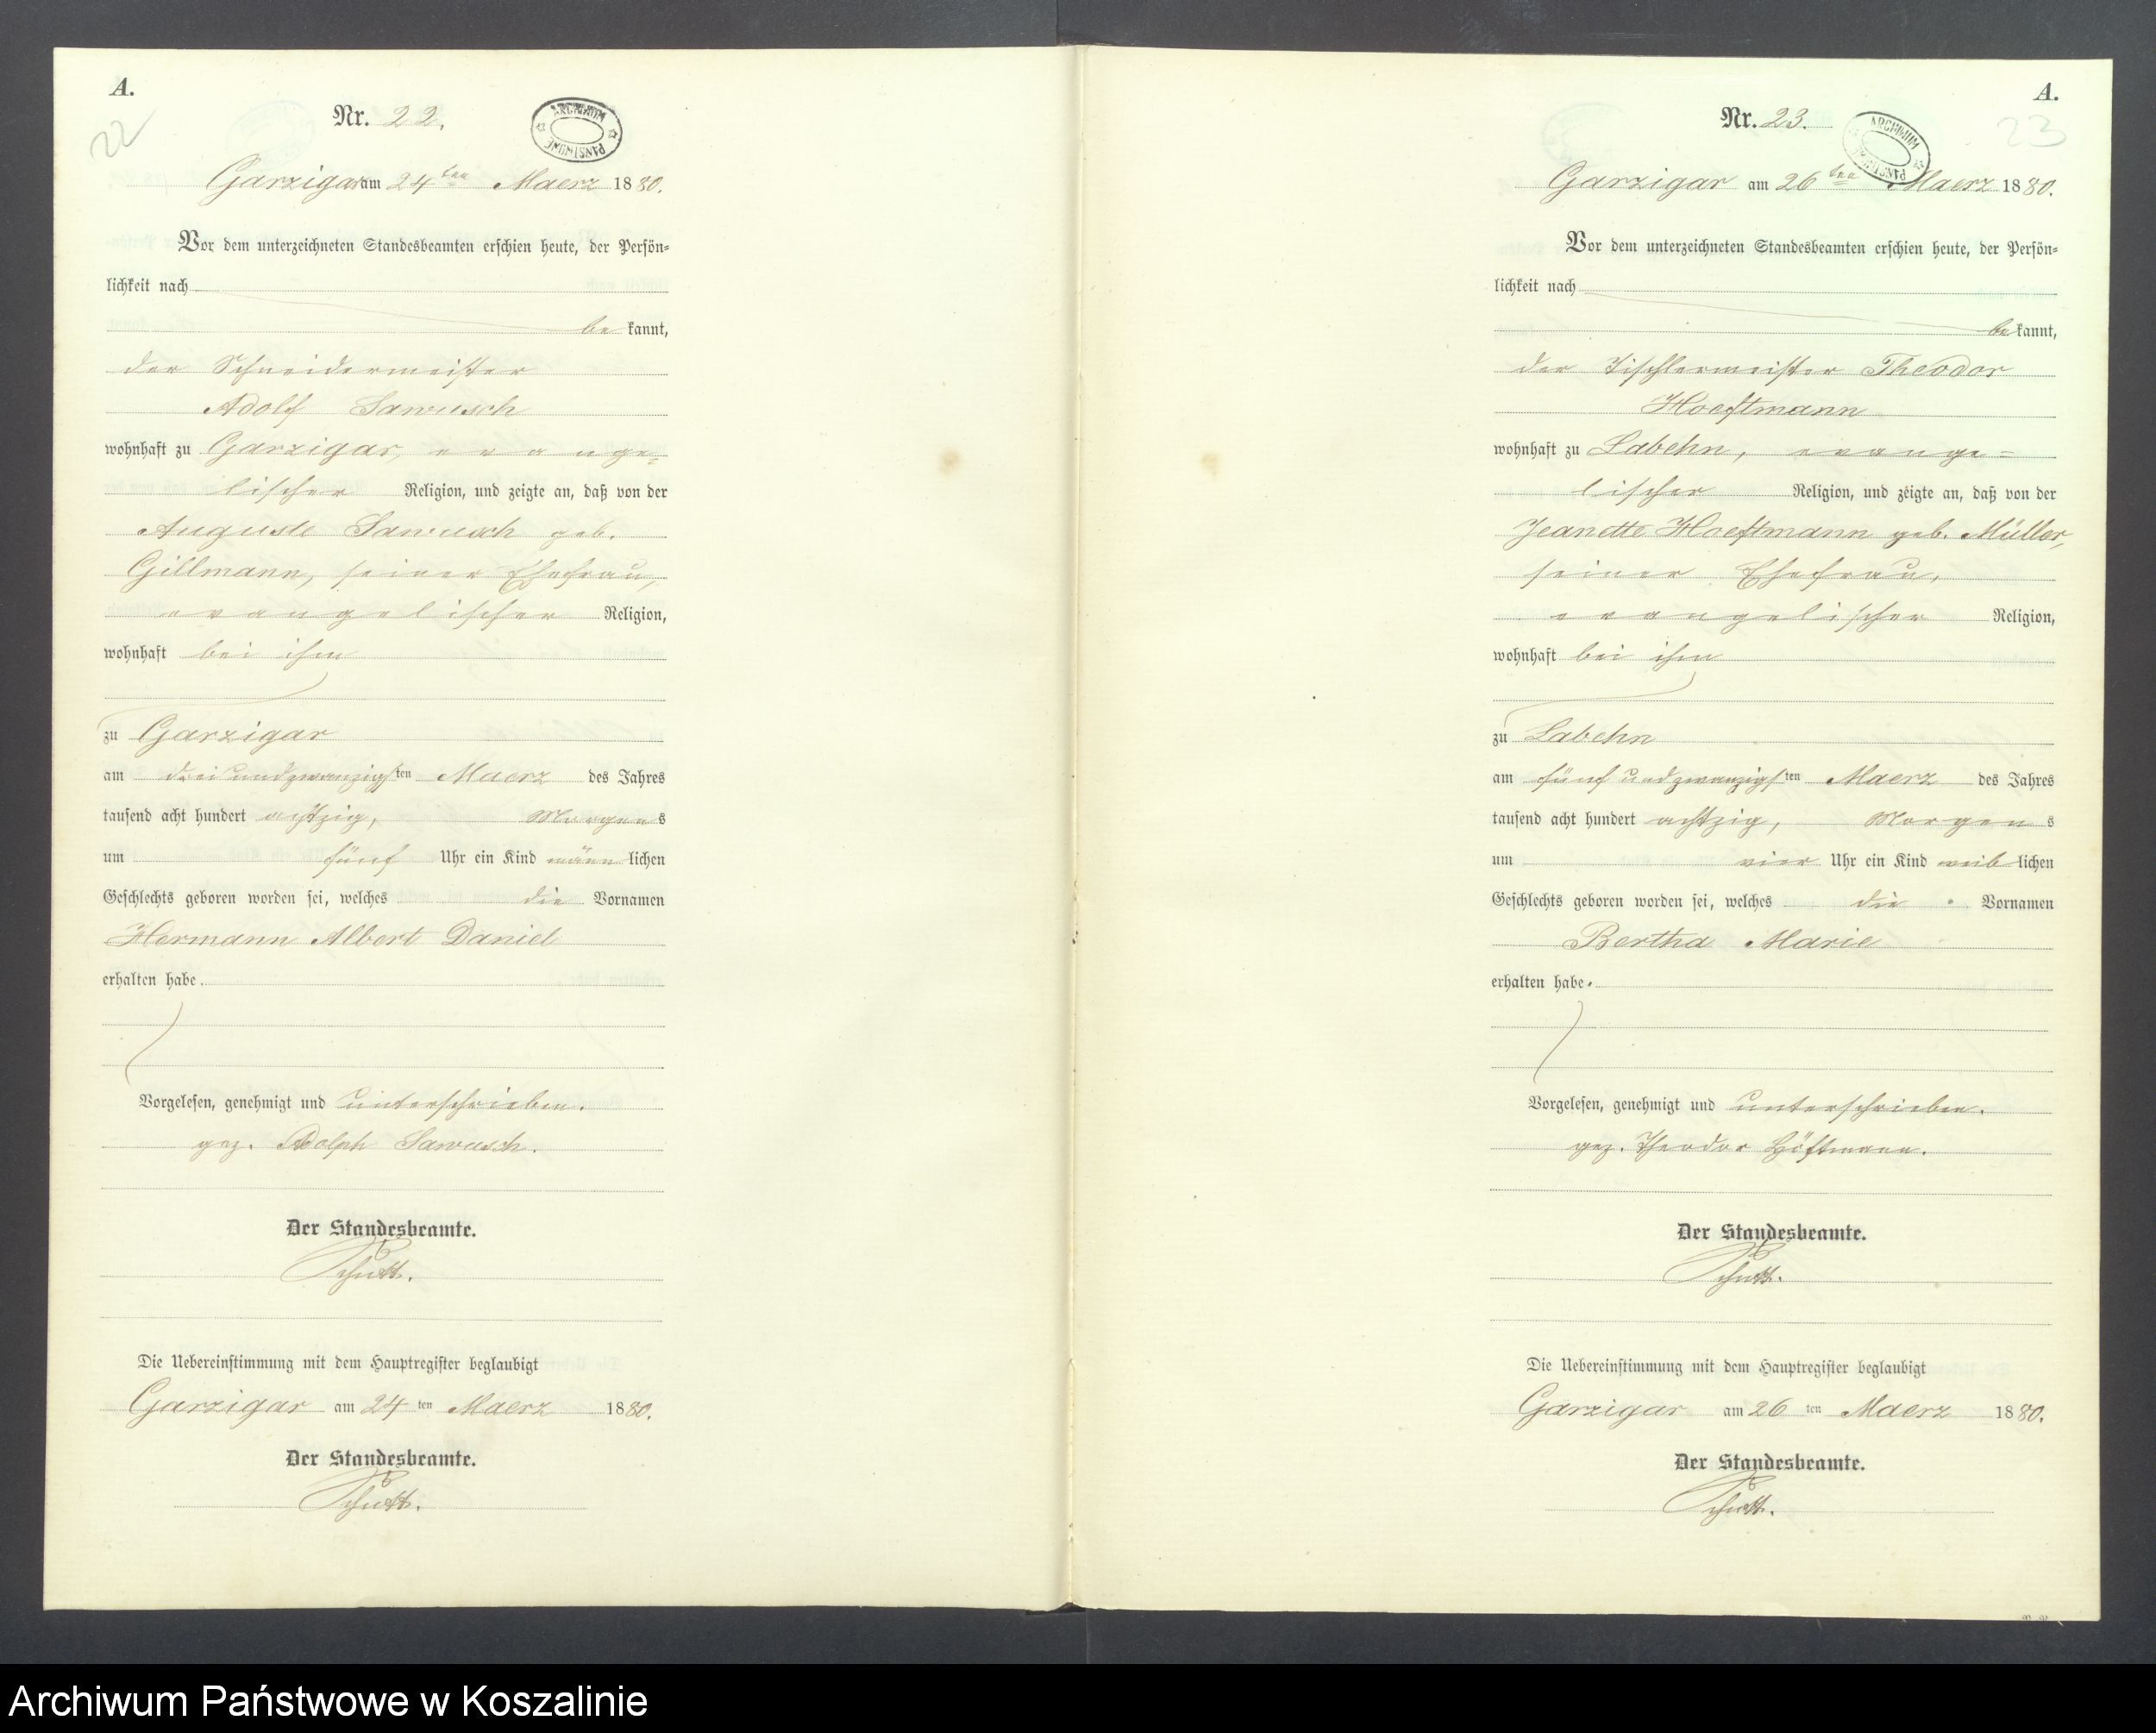 A.
22
Nr. 22.
ARCHIWUM PAŃSTWOWE
Garzigar am 24ten Maerz 1880.
Vor dem unterzeichneten Standesbeamten erschien heute, der Persön=
lichkeit nach
be kannt,
der Schneidermeister
Adolf Sawusch
wohnhaft zu Garzigar, evange=
lischer Religion, und zeigte an, daß von der
Auguste Sawusch geb.
Gillmann, seiner Ehefrau,
evangelischer Religion,
wohnhaft bei ihm
zu Garzigar
am dreiundzwanzigsten Maerz des Jahres
tausend acht hundert achtzig, Morgens
um fünf Uhr ein Kind männlichen
Geschlechts geboren worden sei, welches die Vornamen
Hermann Albert Daniel
erhalten habe.
Vorgelesen, genehmigt und unterschrieben.
gez. Adolph Sawusch.
Der Standesbeamte.
Schutt.
Die Uebereinstimmung mit dem Hauptregister beglaubigt
Garzigar am 24ten Maerz 1880.
Der Standesbeamte.
Schutt.
A.
23
Nr. 23.
ARCHIWUM PAŃSTWOWE
Garzigar am 26ten Maerz 1880.
Vor dem unterzeichneten Standesbeamten erschien heute, der Persön=
lichkeit nach
be kannt,
der Tischlermeister Theodor
Hoeftmann
wohnhaft zu Labehn, evange=
lischer Religion, und zeigte an, daß von der
Jeanette Hoeftmann geb. Müller,
seiner Ehefrau,
evangelischer Religion,
wohnhaft bei ihm
zu Labehn
am fünf und zwanzigsten Maerz des Jahres
tausend acht hundert achtzig, Morgens
um vier Uhr ein Kind weiblichen
Geschlechts geboren worden sei, welches die Vornamen
Bertha Marie
erhalten habe.
Vorgelesen, genehmigt und unterschrieben.
gez. Theodor Höftmann.
Der Standesbeamte.
Schutt.
Die Uebereinstimmung mit dem Hauptregister beglaubigt
Garzigar am 26ten Maerz 1880.
Der Standesbeamte.
Schutt.
Archiwum Państwowe w Koszalinie